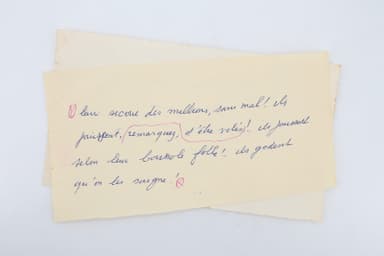 leur secoue des millions, sans mal! ils
jouissent, remarquez, d'être volés!. ils jouissent
selon leur boussole folle!. ils godent
qu'on les saigne!